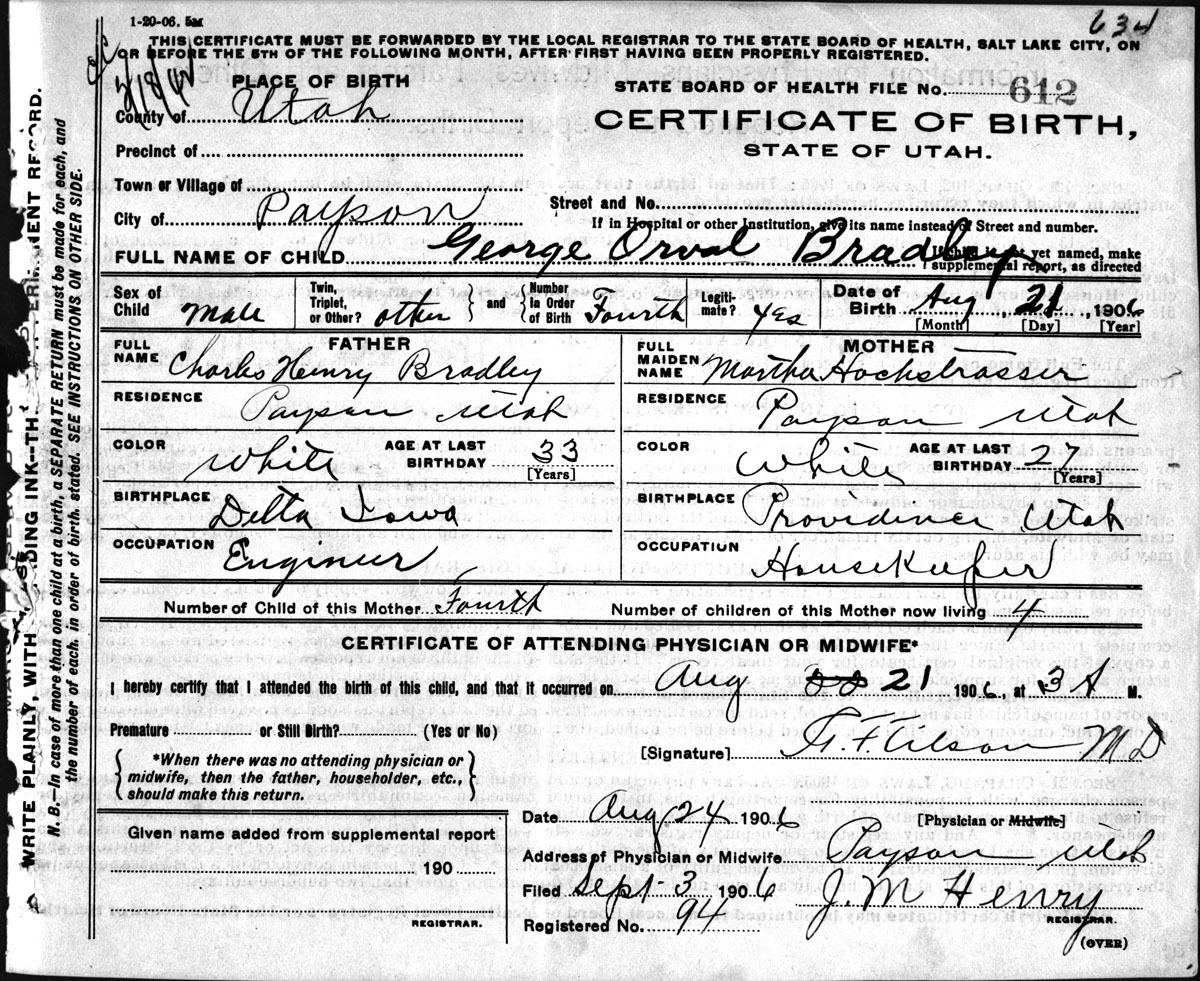 1-20-06. 5M
634
THIS CERTIFICATE MUST BE FORWARDED BY THE LOCAL REGISTRAR TO THE STATE BOARD OF HEALTH, SALT LAKE CITY, ON
OR BEFORE THE 5TH OF THE FOLLOWING MONTH, AFTER FIRST HAVING BEEN PROPERLY REGISTERED.
PLACE OF BIRTH
STATE BOARD OF HEALTH FILE No. 612
County of Utah
CERTIFICATE OF BIRTH,
STATE OF UTAH.
Precinct of
Town or Village of
City of Payson
Street and No.
If in Hospital or other Institution, give its name instead of Street and number.
FULL NAME OF CHILD George Orval Bradley
yet named, make
supplemental report, as directed
Sex of Child Male Twin, Triplet, or Other? other and Number in Order of Birth Fourth Legiti- mate? yes Date of Birth Aug 21, 1906
[Month] [Day] [Year]
FATHER
MOTHER
FULL NAME Charles Henry Bradley
FULL MAIDEN NAME Martha Hochstrasser
RESIDENCE Payson Utah
RESIDENCE Payson Utah
COLOR White AGE AT LAST BIRTHDAY 33 [Years]
COLOR White AGE AT LAST BIRTHDAY 27 [Years]
BIRTHPLACE Delta Iowa
BIRTHPLACE Providence Utah
OCCUPATION Engineer
OCCUPATION Housekeeper
Number of Child of this Mother Fourth Number of children of this Mother now living 4
CERTIFICATE OF ATTENDING PHYSICIAN OR MIDWIFE*
I hereby certify that I attended the birth of this child, and that it occurred on Aug 2 1906, at 3 A M.
Premature or Still Birth? (Yes or No)
[Signature] M D
*When there was no attending physician or
midwife, then the father, householder, etc.,
should make this return.
Date Aug 24 1906 [Physician or Midwife]
Given name added from supplemental report
190
REGISTRAR.
Address of Physician or Midwife Payson Utah
Filed Sept 3 1906 J. M Henry
Registered No. 94 REGISTRAR.
(OVER)
N. B.—In case of more than one child at a birth, a SEPARATE RETURN must be made for each, and
the number of each, in order of birth, stated. SEE INSTRUCTIONS ON OTHER SIDE.